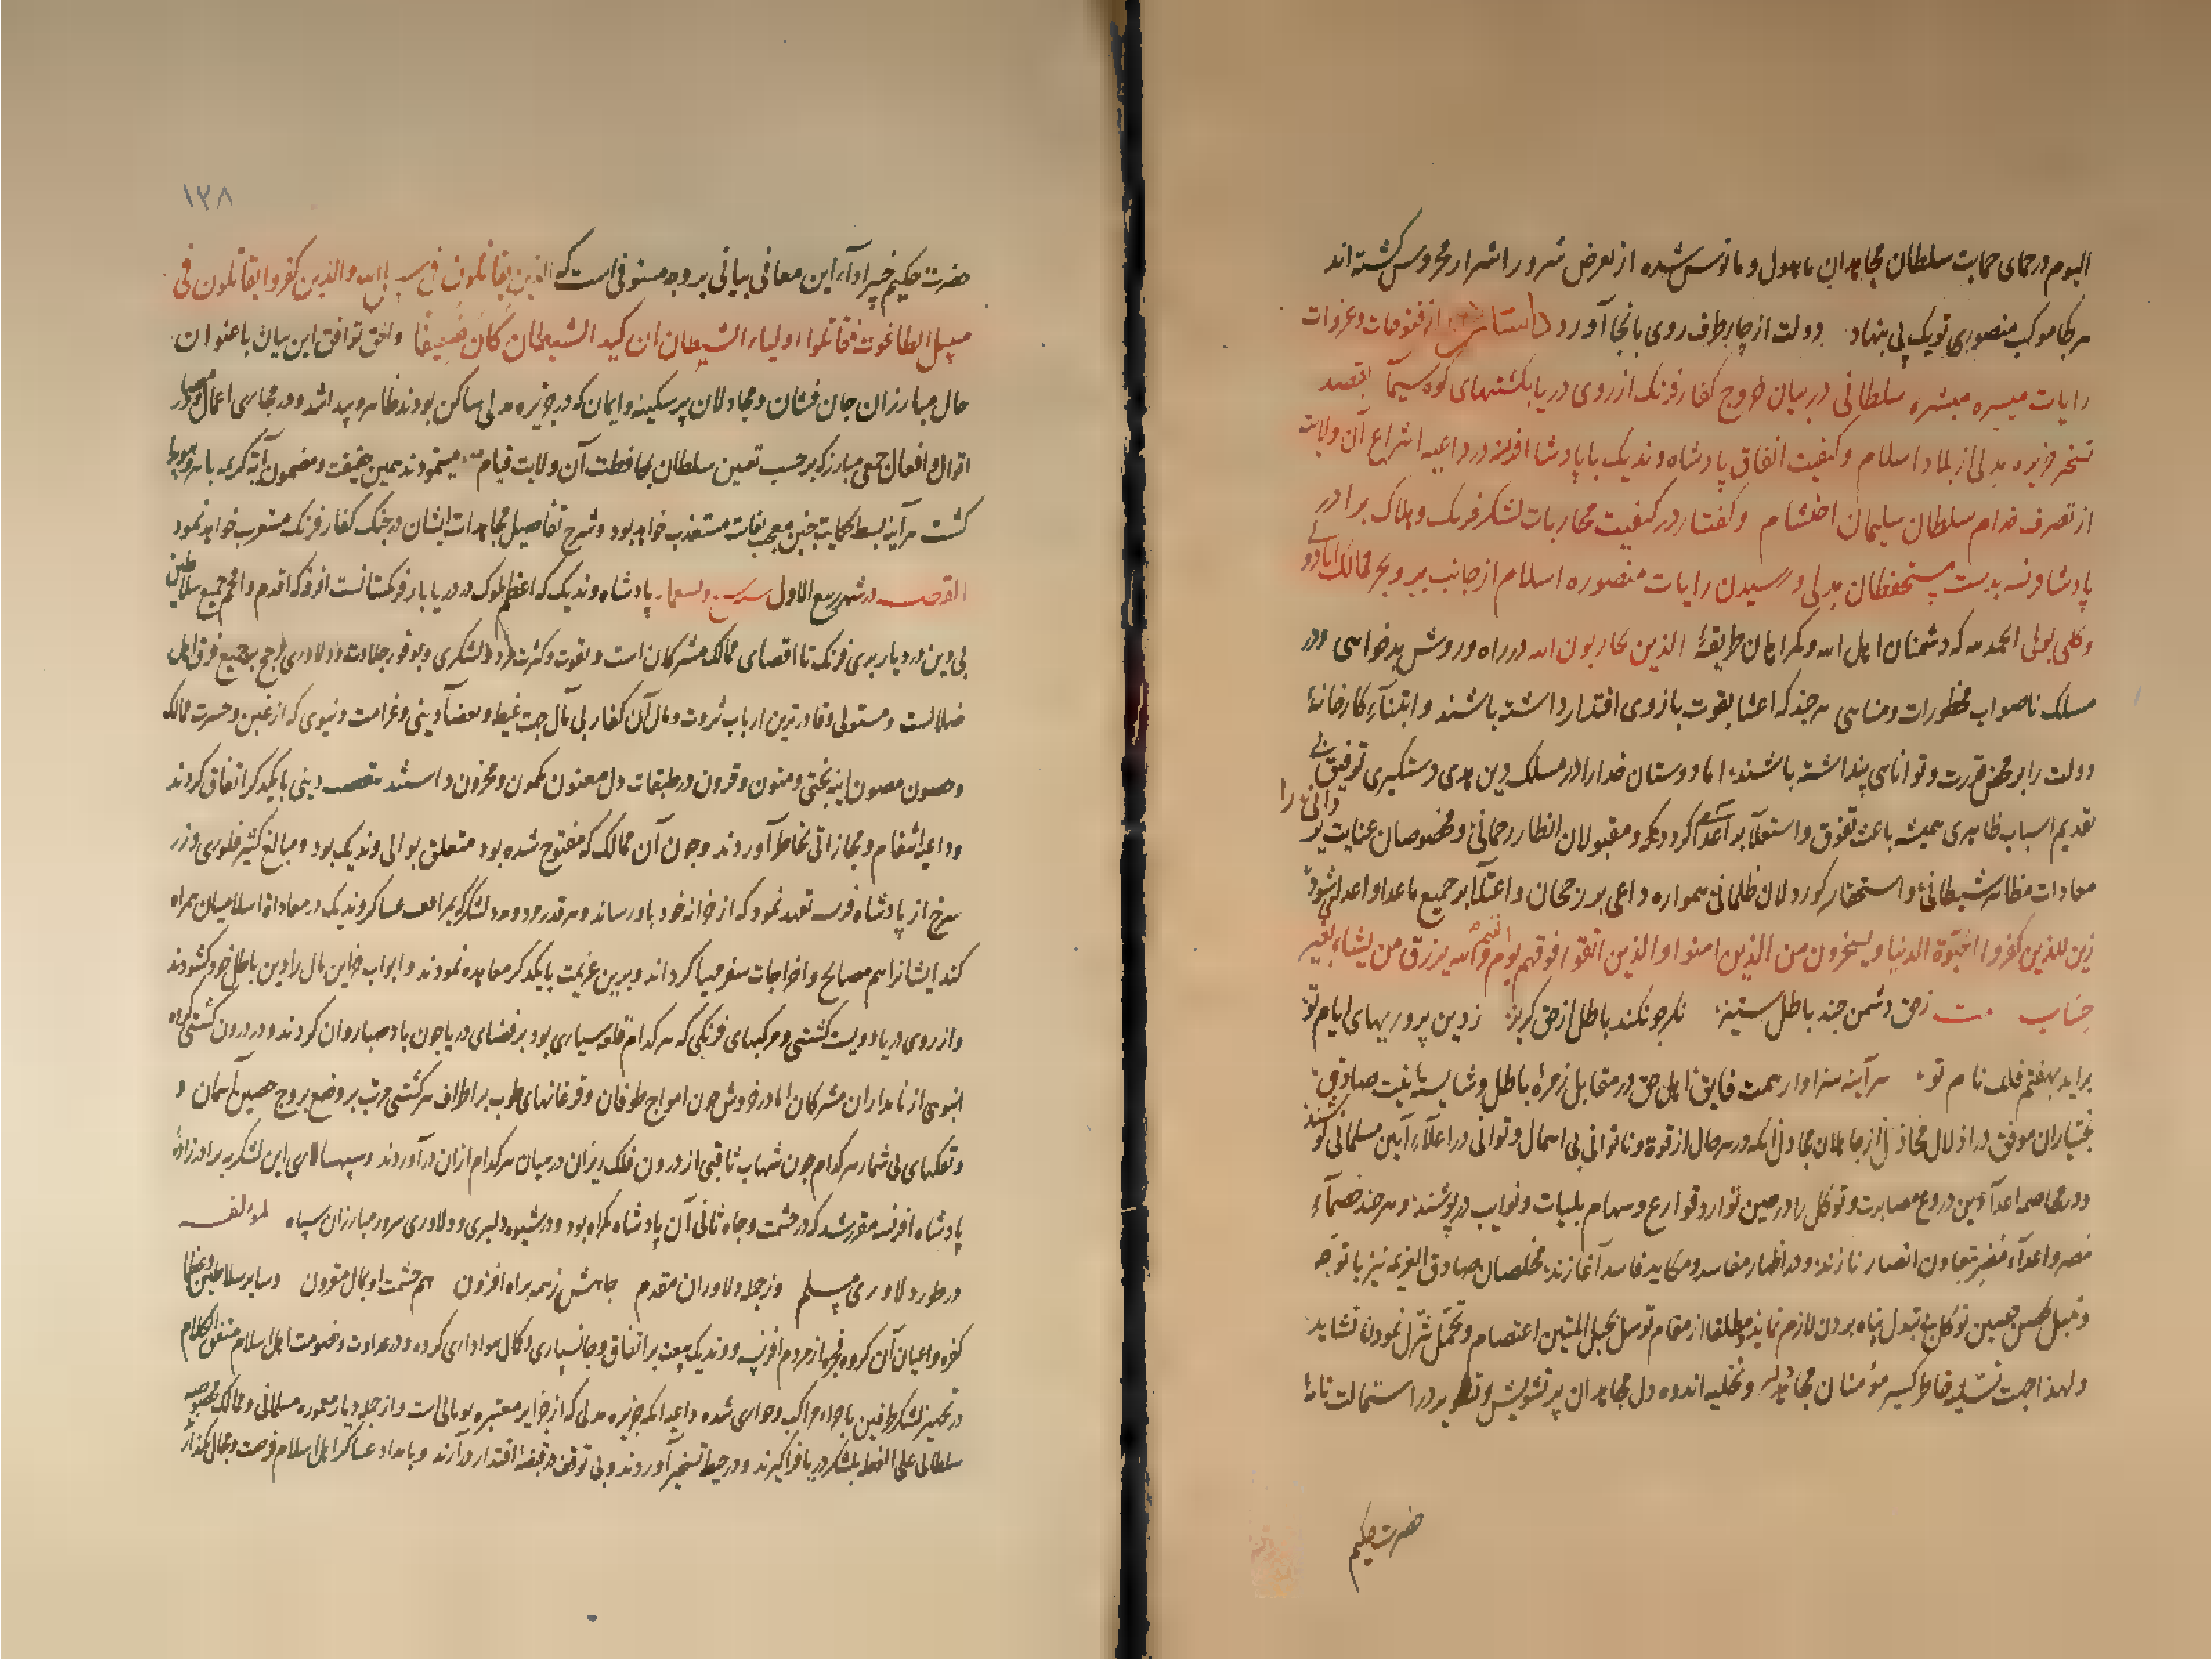 الیوم در حمای حمایت سلطان مجاهدان ماهول و مانوس شده از تعرض شرور اشرار محروس کشته اند
هر کجا موکب منصوری تو یک پی بنهاد دولت از چار طرف روی بانجا آورد داستان از فتوحات و غزوات
رایات میسره مبشره سلطانی در بیان خروج کفار فرنک از روی دریا بکشتیهای کوه سیما بقصد
تسخیر جزیره مدلی از بلاد اسلام و کیفیت اتفاق پادشاه وندیک با پادشا افرنسه در داعیه انتزاع آن ولایت
از تصرف خدام سلطان سلیمان احتشام و کفتار در کیفیت محاربات لشکر فرنک و هلاک برادر
پادشا فرنسه بدست مستحفظان مدلی و رسیدن رایات منصوره اسلام از جانب بر و بحر ممالک
الحمد لله که دشمنان اهل الله و کمراهان طریقهٔ الذین یحاربون الله در راه و روش بدخواهی و در
مسلک ناصواب محظورات و مناهی هر چند که اعتنا بقوت بازوی اقتدار داشته باشند و ابتناء کارخانهٔ
دولت را بر محض قدرت و توانایی پنداشته باشند اما دوستان خدا را در مسلک دین هدی دستکیری توفیق
تقدیم اسباب ظاهری همیشه باعث تفوق و استعلا بر اعدا کردد و مقبولان انظار رحمانی و مخصوصان عنایت
معادات مظاهر شیطانی و استحقار کوردلان ظلمانی همواره داعی بر رجحان و اعتلا بر جمیع ماعدا و اعدا شود
زین للذین کفروا الحیوة الدنیا ویسخرون من الذین امنوا والذین اتقوا فوقهم یوم القیمة والله یرزق من یشاء بغیر
حساب زحق دشمن چند باطل ستیز نکر چون کند باطل از حق کریز ز دین پروریهای ایام تو
برآید بهفتم فلک نام تو هر آینه سزاوار همت فایق اهل حق در مقابل زمرهٔ باطل و شایسته نیت صادق
بختیاران موفق در اذلال مخاذل از جاهلان مجادل آنکه در هر حال از قوة و ناتوانی بی اهمال و توانی در اعلاء آیین مسلمانی کوشند
و در مخاصمه اعداء دین دروع مصابرت و توکل را در حین توارد قوارع و سهام بلیات و نوایب درپوشند و هر چند خصماء
مصر و اعداء مضر بتعاون انصار نازند و در اظهار مفاسد و مکاید فاسد آغازند مخلصان صادق العزیمه نیز با توجه
و نیل حصن حصین توکل بی تبدل پناه بردن لازم نمایند و مطلقا از مقام توسل بحبل المتین اعتصام و تحمل تنزل نمودن نشاید
ولهذا جهت تسلیه خاطر کسیر مؤمنان مجاهد و تخلیه اندوه دل مجاهدان پر تشویش و در استمالت نامهٔ
حضرت حکیم
١٢٨
حضرت حکیم خبیر اداء این معانی بیانی بر وجه مستوفی است که الذین یقاتلون فی سبیل الله والذین کفروا یقاتلون فی
سبیل الطاغوت فقاتلوا اولیاء الشیطان ان کید الشیطان کان ضعیفا والحق توافق این بیان با عنوان
حال مبارزان جان فشان و مجادلان پر سکینه و ایمان که در جزیره مدلی ساکن بودند ظاهر و پیدا شد و در مجاری اعمال
اقوال و افعال جمعی مبارز که بر حسب تعیین سلطان بمحافظت آن ولایت قیام مینمودند همین حقیقت و مضمون آیه کریمه
کشت هر آینه بسط حکایت چنین مستعذب خواهد بود و شرح تفاصیل مجاهدات ایشان در جنک کفار فرنک مستغرب خواهد نمود
القصه در شهر ربیع الاول سنه سبع و تسعمایه پادشاه وندیک که اعظم ملوک در دریابار فرنکستانست افرنک اقدم و افخم جمیع سلاطین
بی دین در دیار بری فرنک تا اقصای ممالک مشرکان است و بقوت و کثرت لشکری و بوفور جلادت و دلاوری ارجح بر جمیع فرق اهل
ضلالست و مستولی و قادرترین ارباب ثروت و مال آن کفار بی مآل جهت غیظ و بغضاء دینی و غرامت دنیوی که از غبن و حسرت ممالک
و حصون مصون اینه بختی و متون و قرون در طبقات دل مکنون و مخزون داشتند بتعصب دینی با یکدکر اتفاق کردند
و داعیه انتقام و مجازاتی بخاطر آوردند و چون آن ممالک که مفتوح شده بود متعلق بوالی وندیک بود و مبالغ کثیر فلوری و زر
سرخ از پادشاه فرنسه تعهد نمود که از خزانه خود باو رساند و هر قدر و لشکر که بمرافقت عساکر وندیک در معاداة اسلامیان همراه
کند ایشانرا هم مصالح و اخراجات سفر مهیا کرداند و برین عزیمت با یکدکر معاهده نمودند و ابواب خزاین مال را در دین باطل خود کشودند
و از روی دریا دویست کشتی و مرکبهای فرنکی که هر کدام قلعه سیاری بود بر فضای دریا چون باد صبا روان کردند و در درون کشتی
انبوهی از نامداران مشرکان اما در خروش چون امواج طوفان و قزغانهای طوب بر اطراف هر کشتی مرتب بر وضع بروج حصین آسمان و
و تفکهای بی شمار هر کدام چون شهاب ثاقبی از درون فلک ریزان در میان هر کدام ازان درآوردند و سپهسالاری این لشکر به برادرزادهٔ
پادشاه افرنسه مقرر شد که در حشمت و جاه ثانی آن پادشاه کمراه بود و در شیوه دلیری و دلاوری سرور مبارزان سپاه لمؤلفه
در طور دلاوری مسلم وز جمله دلاوران مقدم جاهش ز همه براه افزون هم حشمت او بمال مقرون و سایر سلاطین
کفره و اعیان آن کروه از مردم افرنسه و وندیک بیعت بر اتفاق و جانسپاری و کمال هواداری کرده و در عداوت و خصومت اهل اسلام متفق الکلام
در تجهیز لشکر طرفین شده داعیه آنکه جزیره مدلی که از جزایر معتبره یونانی است و از جمله دیار معموره مسلمانی و ممالک
سلطانی علی الغفله بلشکر دریا فراکیرند و در حیطه تسخیر آوردند و بی توقف در قبضهٔ اقتدار درآرند و بامداد عساکر اهل اسلام فرصت و مجال